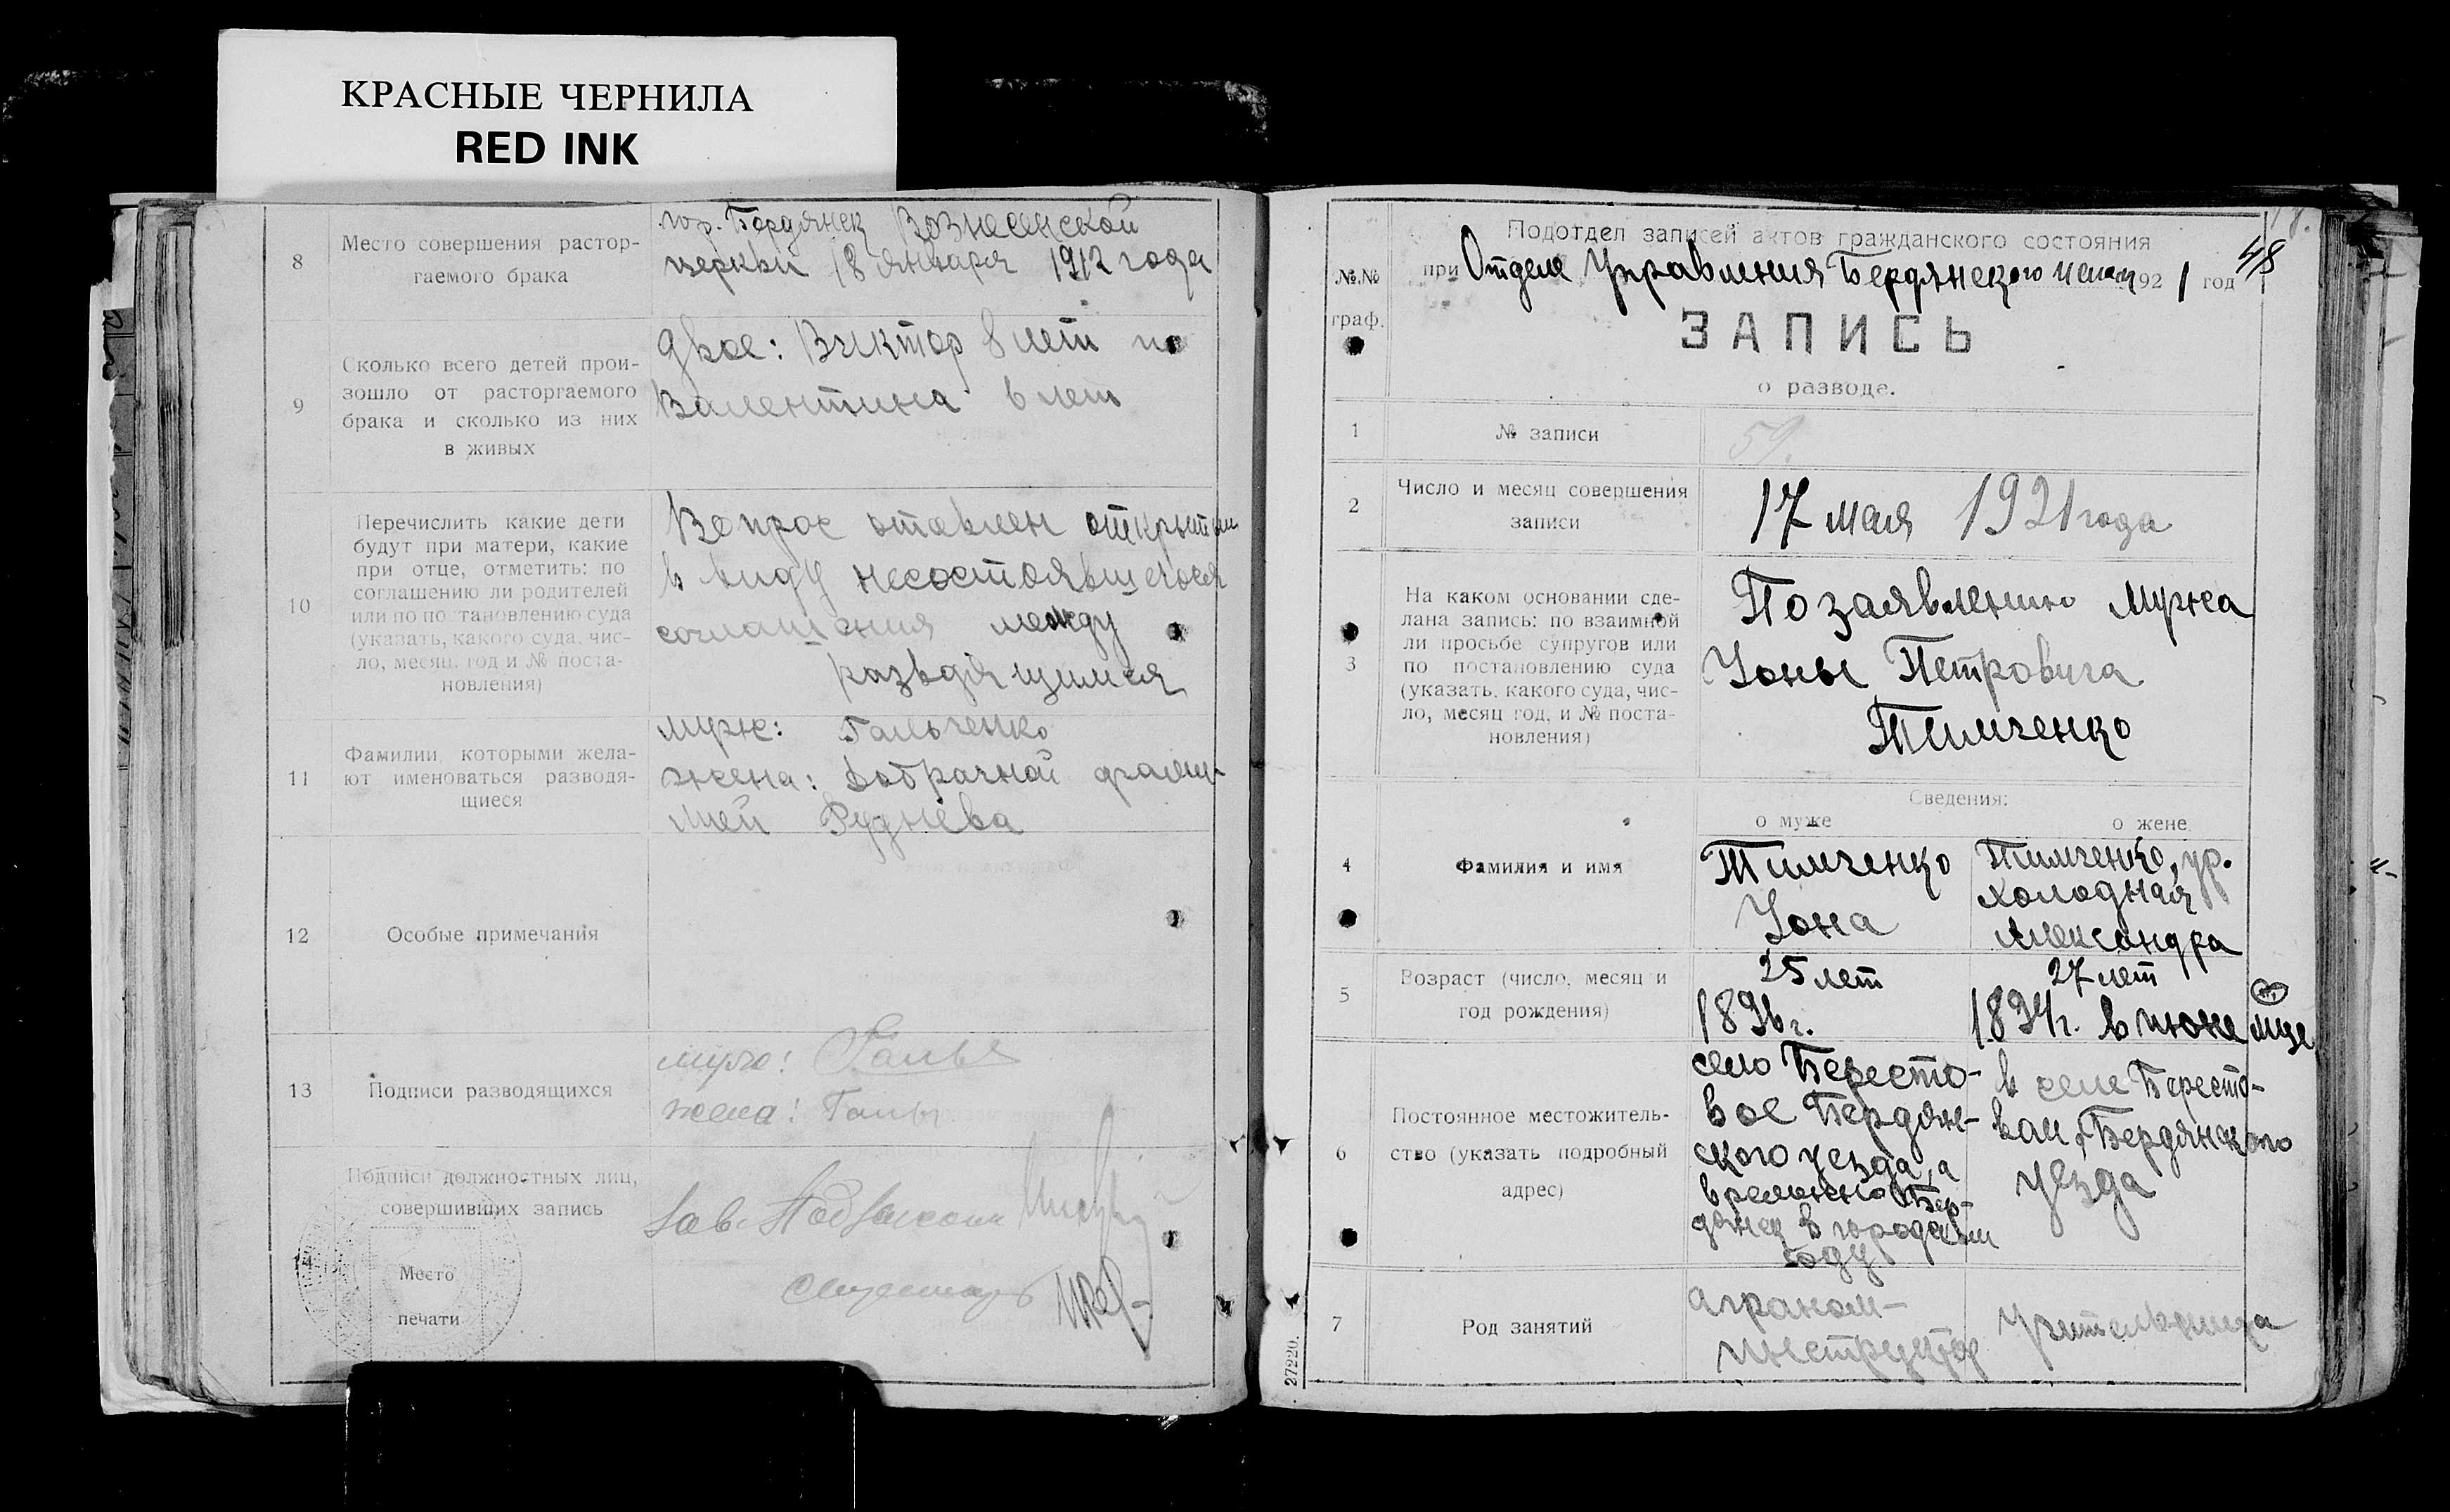 КРАСНЫЕ ЧЕРНИЛА
RED INK
8
Место совершения растор-
гаемого брака
гор. Бердянск Вознесенской
церкви 18 января 1912 года
9
Сколько всего детей прои-
зошло от расторгаемого
брака и сколько из них
в живых
двое: Виктор 8 лет
Валентина 6 лет
10
Перечислить какие дети
будут при матери, какие
при отце, отметить: по
соглашению ли родителей
или по постановлению суда
(указать, какого суда, чис-
ло, месяц, год и № поста-
новления)
Вопрос оставлен открытым
в виду несостоявшегося
соглашения между
разводящимися
11
Фамилии, которыми жела-
ют именоваться разводя-
щиеся
муж: Гальченко
жена: добрачной фами-
лией Руднева
12
Особые примечания
13
Подписи разводящихся
муж:
жена:
14
Подписи должностных лиц,
совершивших запись
Место
печати
Зав.
48
№№
граф.
Подотдел записей актов гражданского состояния
при Отделе Управления Бердянского 1921 год
ЗАПИСЬ
о разводе.
1
№ записи
59.
2
Число и месяц совершения
записи
17 мая 1921 года
3
На каком основании сде-
лана запись: по взаимной
ли просьбе супругов или
по постановлению суда
(указать, какого суда, чис-
ло, месяц год, и № поста-
новления)
По заявлению мужа
Ионы Петровича
Тимченко
Сведения:
о муже
о жене
4
Фамилия и имя
Тимченко
Иона
Тимченко, ур.
Холодная
Александра
5
Возраст (число, месяц и
год рождения)
25 лет
1896 г.
27 лет
1894 г. в июне м-це
6
Постоянное местожитель-
ство (указать подробный
адрес)
село Бересто-
вое Бердян-
ского уезда, а
временно Бер-
дянск в городском
саду
в селе Бересто-
вом, Бердянского
уезда
7
Род занятий
агроном-
инструктор
учительница
27220.